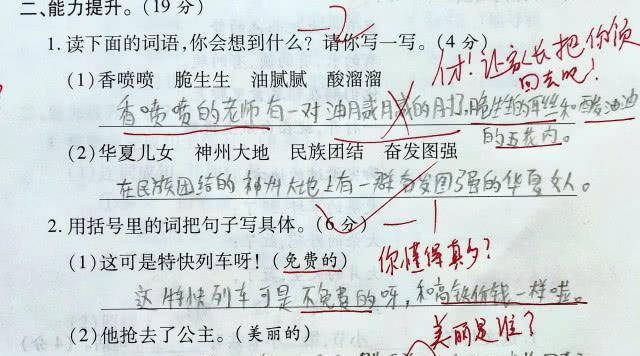 二、能力提升。(19 分)
1. 读下面的词语,你会想到什么? 请你写一写。(4 分)
(1)香喷喷 脆生生 油腻腻 酸溜溜
让家长把你领
回去吧!
香喷喷的老师有一对油腻腻的
和酸溜溜
的五花肉。
(2)华夏儿女 神州大地 民族团结 奋发图强
在民族团结的神州大地上有一群奋发图强的华夏女人。
2. 用括号里的词把句子写具体。(6 分) —1
(1)这可是特快列车呀! (免费的) 你懂得真多?
这特快列车可是不免费的呀,和高铁价钱一样啦。
(2)他抢去了公主。(美丽的) 美丽是谁?